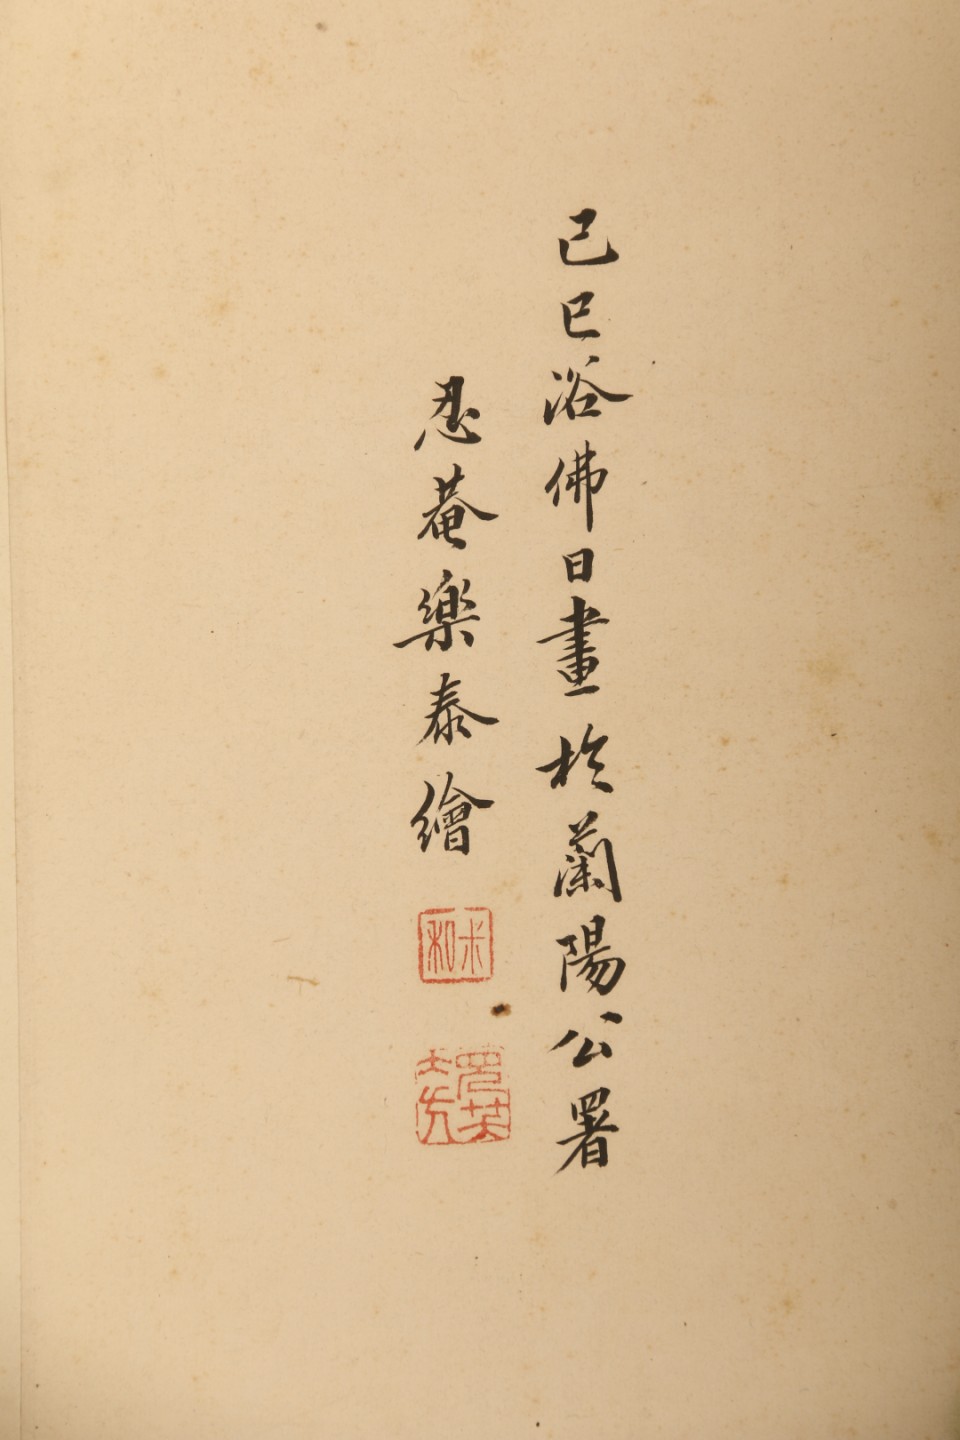 己巳浴佛日畫於蘭陽公署
忍菴樂泰繪